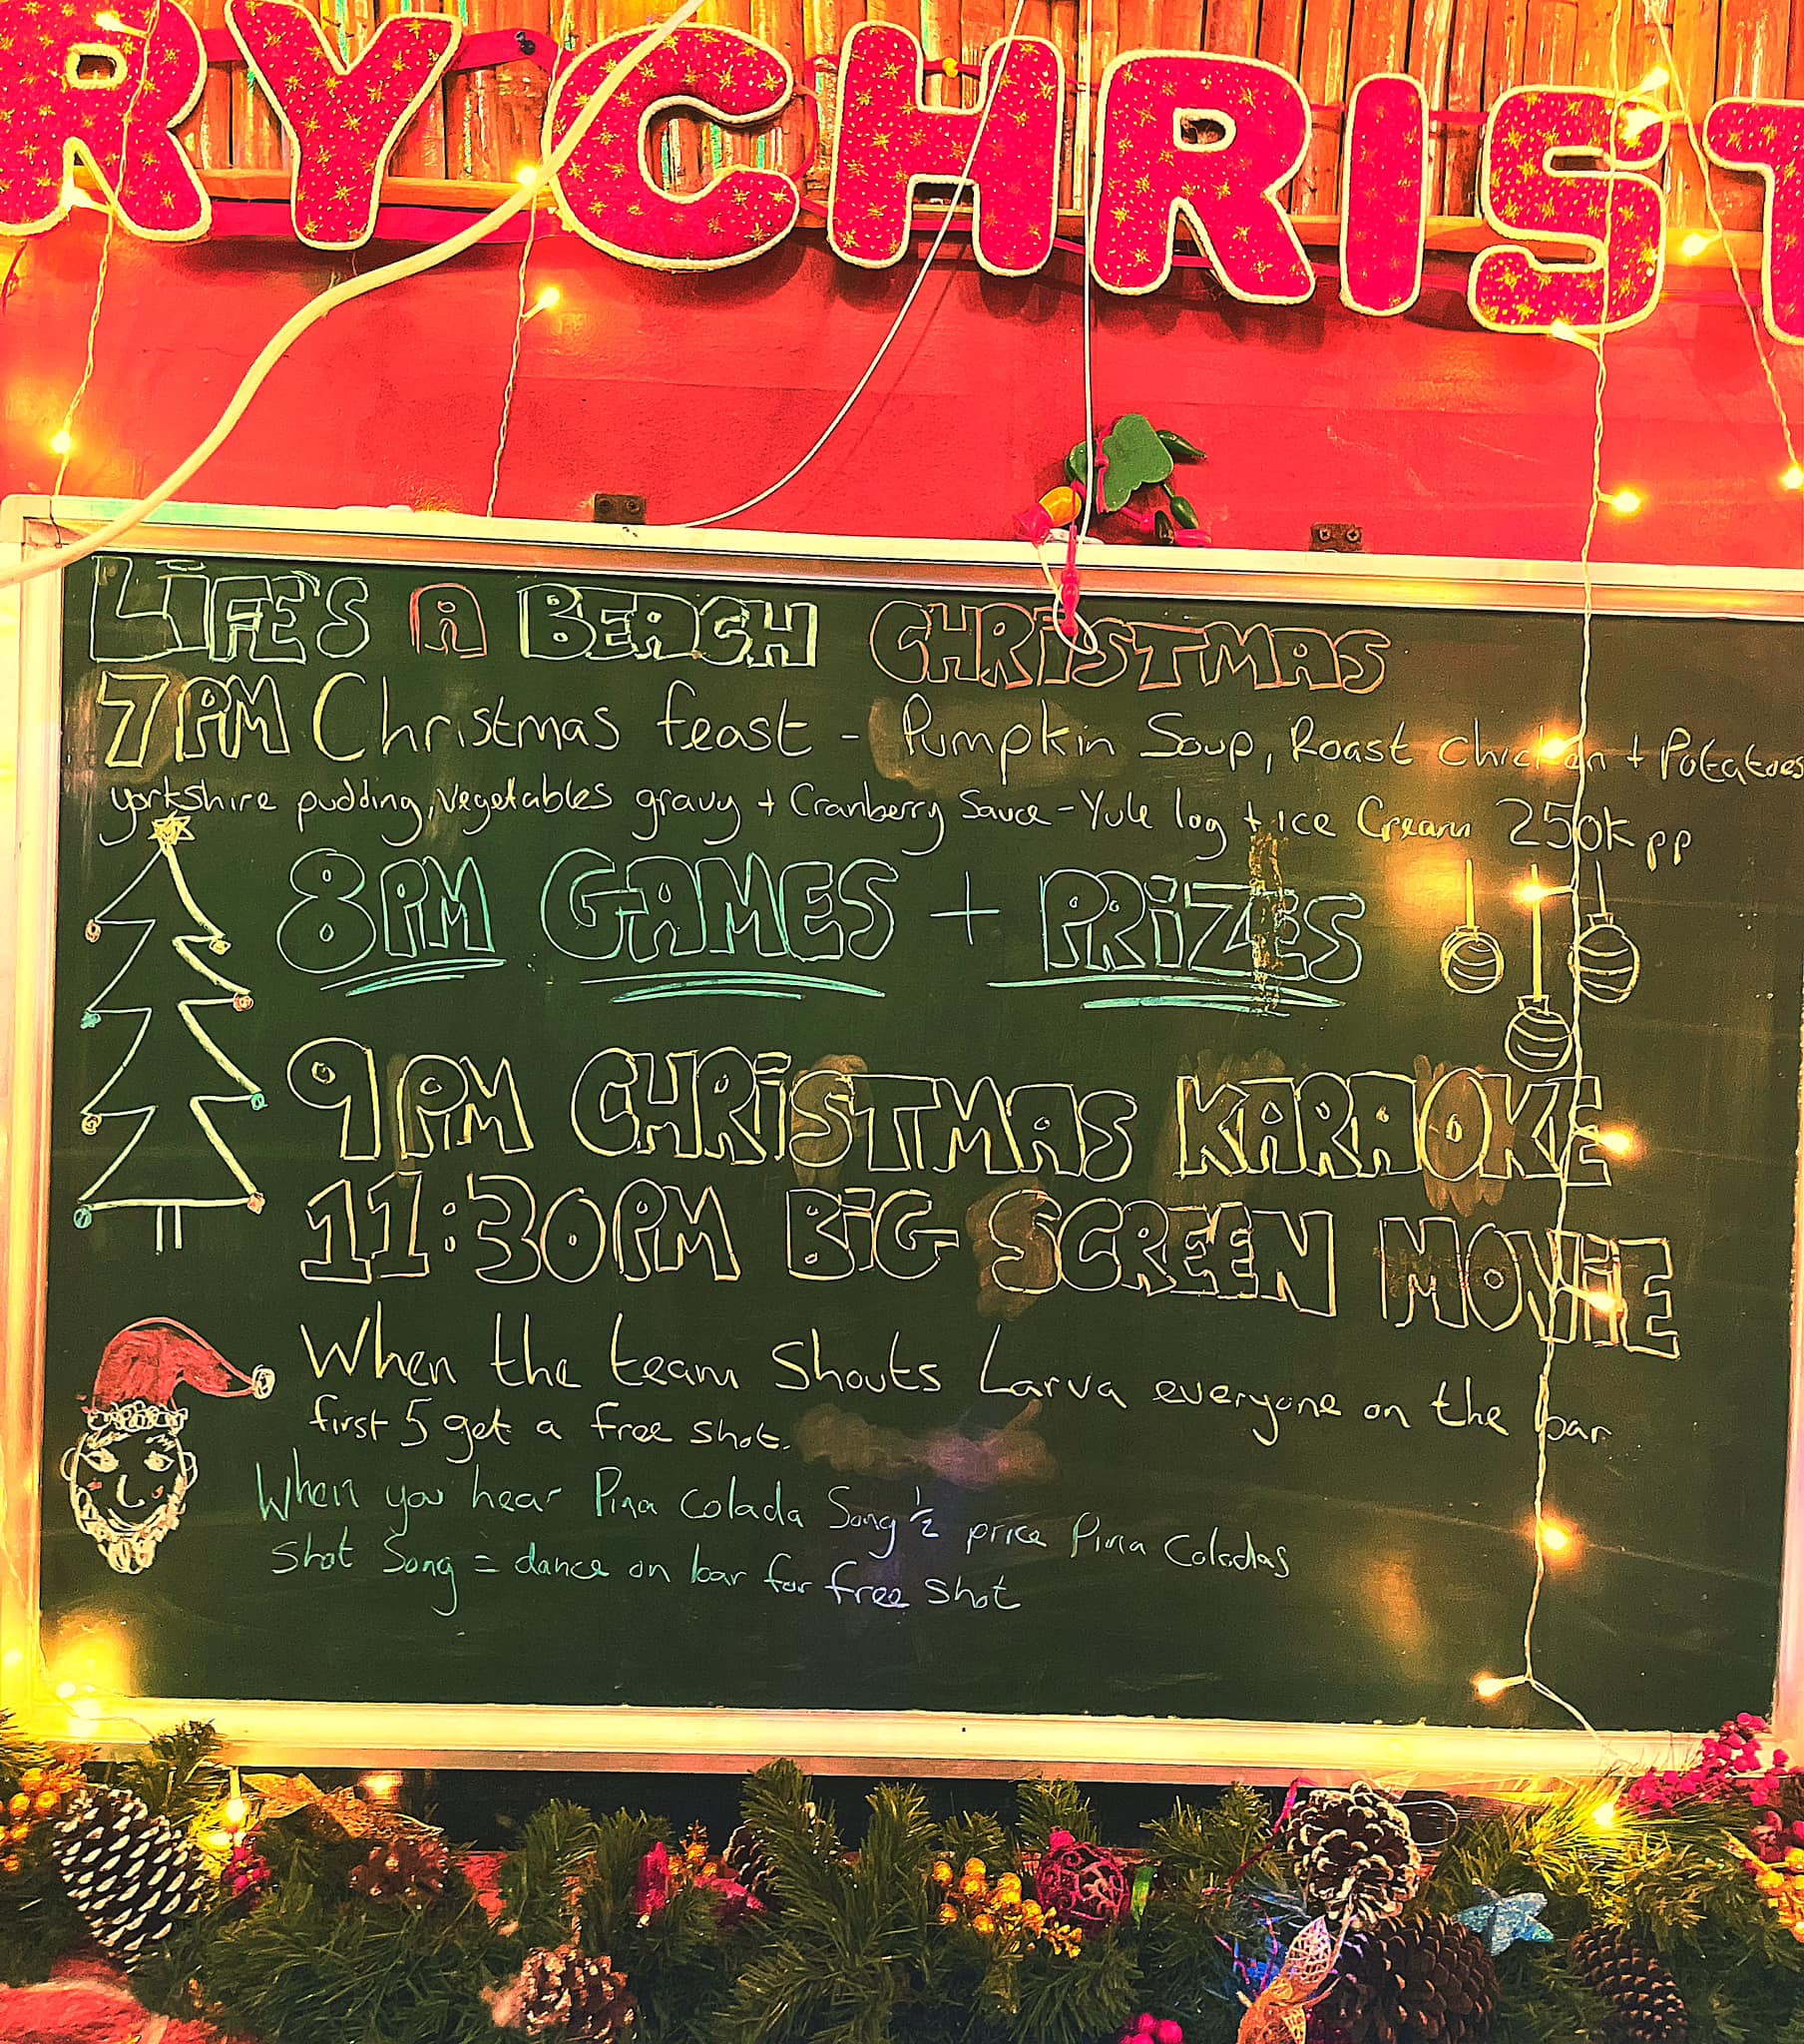 RY CHRIST
LIFE'S A BEACH CHRISTMAS
7PM Christmas feast - Pumpkin Soup, Roast chicken + Potatoes
yorkshire pudding, vegetables gravy + Cranberry Sauce - Yule log + ice Cream 250K pp
8PM GAMES + PRIZES
9PM CHRISTMAS KARAOKE
11:30PM BIG SCREEN MOVIE
When the team Shouts Larva everyone on the bar
first 5 get a free shot.
When you hear Pina Colada Song 1/2 price Pina Coladas
Shot Song = dance on bar for free shot